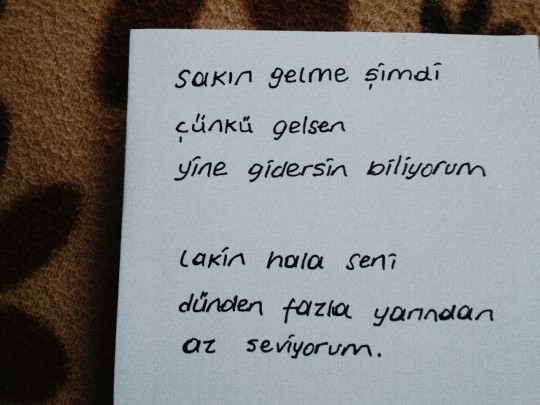 sakın gelme şimdi
çünkü gelsen
yine gidersin biliyorum
lakin hala seni
dünden fazla yarından
az seviyorum.